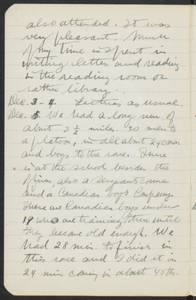 also attended. It was
very pleasant. Much
of my time is spent in
writing letters and reading
in the reading room or
rather library.
Dec. 3-4. Lectures as usual.
Dec. 5 We had a long run of
about 2½ miles. 30 men to
a platoon, in all about 240 men
and boys to the race. There
is at the school beside the
officers, also a Sergeants course
and a Canadian Boys Company.
These are Canadian boys under
18 who are training there until
they become old enough. We
had 28 men to finish in
this race and I did it in
24 min coming in about 40th.